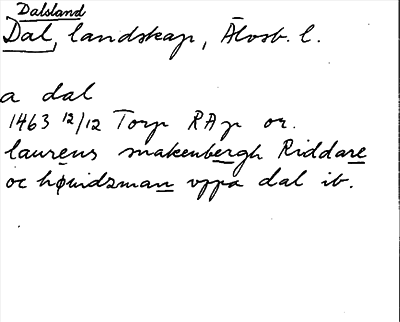 Dalsland
Dal, landskap, Älvsb. l.
a dal
1463 12/12 Torp RAp or.
laurens snakenbergh Riddare
oc høuidzman vppa dal ib.